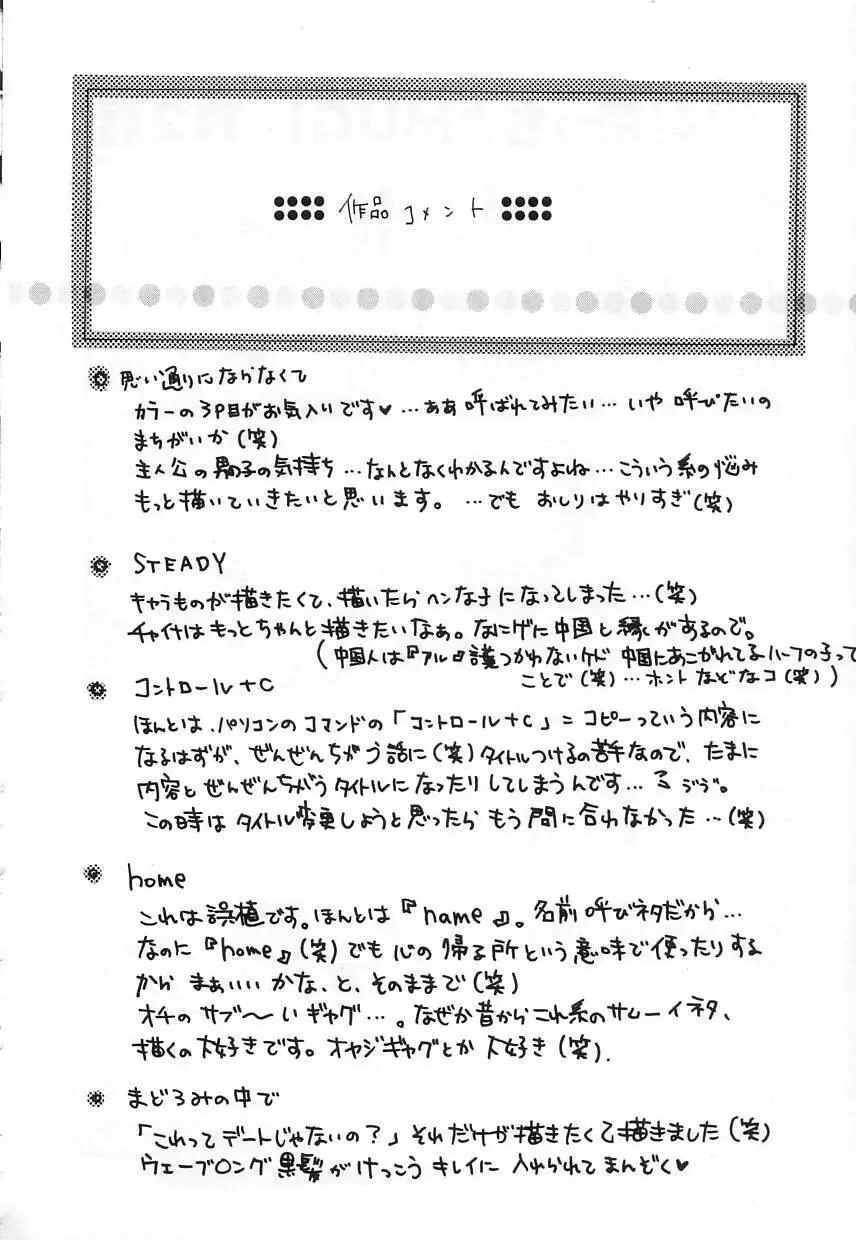 作品コメント
思い通りにならなくて
カラーの3P目がお気入りです♥…ああ呼ばれてみたい…いや呼びたいの
まちがいか(笑)
主人公の男の子の気持ち…なんとなくわかるんですよね…こういう系の悩み
もっと描いていきたいと思います。…でもおしりはやりすぎ(笑)
STEADY
キャラものが描きたくて、描いたらヘンな子になってしまった…(笑)
チャイナはもっとちゃんと描きたいなぁ。なにげに中国と縁があるので。
(中国人は『アル』語つかわないケド中国にあこがれてるハーフの子って
ことで(笑)…ホントなどなコ(笑))
コントロール+C
ほんとは、パソコンのコマンドの「コントロール+C」=コピーっていう内容に
なるはずが、ぜんぜんちがう話に(笑)タイトルつけるの苦手なので、たまに
内容とぜんぜんちがうタイトルになったりしてしまうんです…
この時はタイトル変更しようと思ったらもう間に合わなかった…(笑)
home
これは誤植です。ほんとは『name』。名前呼びネタだから…
なのに『home』(笑)でも心の帰る所という意味で使ったりする
からまぁいいかな、と、そのままで(笑)
オチのサブ〜いギャグ…。なぜか昔からこれ系のサムーイネタ、
描くの大好きです。オヤジギャグとか大好き(笑).
まどろみの中で
「これってデートじゃないの?」それだけが描きたくて描きました(笑)
ウェーブロング黒髪がけっこうキレイに入れられてまんぞく♥